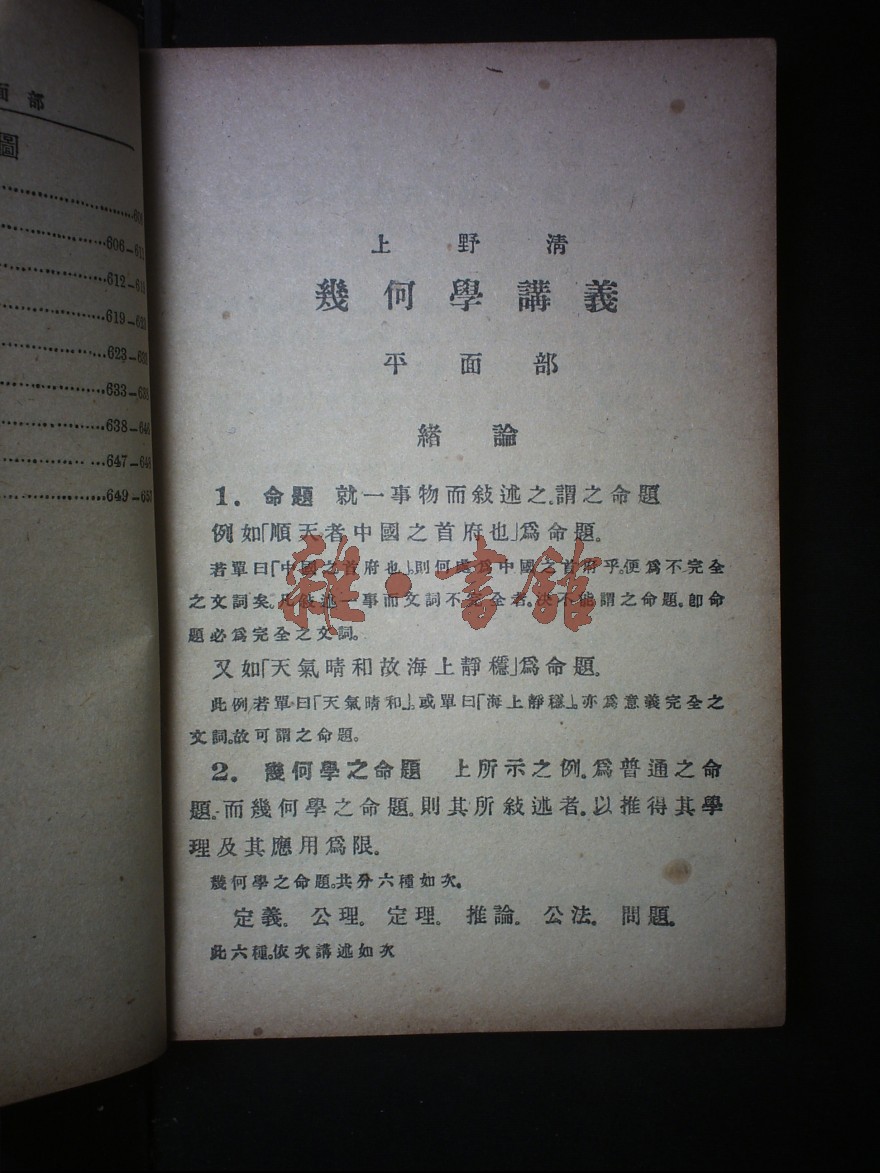 面 部
圖
606-611
612-618
619-623
623-631
633-638
638-646
647-648
649-65
上 野 淸
幾 何 學 講 義
平 面 部
緒 論
1. 命題 就一事物而敍述之。謂之命題
例如「順天者中國之首府也」爲命題。
若單曰「中國之首府也」則何處爲中國之首府乎。便爲不完全
之文詞矣。凡敍述一事而文詞不完全者。決不能謂之命題。卽命
題必爲完全之文詞。
又如「天氣晴和故海上靜穩」爲命題。
此例若單曰「天氣晴和」。或單曰「海上靜穩」。亦爲意義完全之
文詞。故可謂之命題。
2. 幾何學之命題 上所示之例。爲普通之命
題。而幾何學之命題。則其所敍述者。以推得其學
理及其應用爲限。
幾何學之命題。共分六種如次。
定義。 公理。 定理。 推論。 公法。 問題。
此六種。依次講述如次
雜·書館